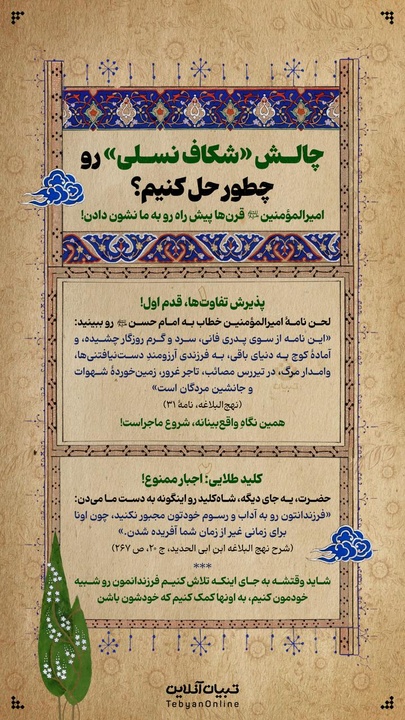 چالش «شکاف نسلی» رو
چطور حل کنیم؟
امیرالمؤمنین ﷺ قرن‌ها پیش راه رو به ما نشون دادن!
پذیرش تفاوت‌ها، قدم اول!
لحن نامهٔ امیرالمؤمنین خطاب به امام حسن رو ببینید:
«این نامه از سوی پدری فانی، سرد و گرم روزگار چشیده، و
آمادهٔ کوچ به دنیای باقی، به فرزندی آرزومندِ دست‌نیافتنی‌ها،
وامدار مرگ، در تیررس مصائب، تاجر غرور، زمین‌خوردهٔ شهوات
و جانشین مردگان است»
(نهج‌البلاغه، نامهٔ ۳۱)
همین نگاهِ واقع‌بینانه، شروع ماجراست!
کلید طلایی: اجبار ممنوع!
حضرت، یه جای دیگه، شاه‌کلید رو اینگونه به دست ما می‌دن:
«فرزندانتون رو به آداب و رسوم خودتون مجبور نکنید، چون اونا
برای زمانی غیر از زمان شما آفریده شدن.»
(شرح نهج البلاغه ابن ابی الحدید، ج ۲۰، ص ۲۶۷)
***
شاید وقتشه به جای اینکه تلاش کنیم فرزندانمون رو شبیه
خودمون کنیم، به اونها کمک کنیم که خودشون باشن
تبیان آنلاین
TebyanOnline